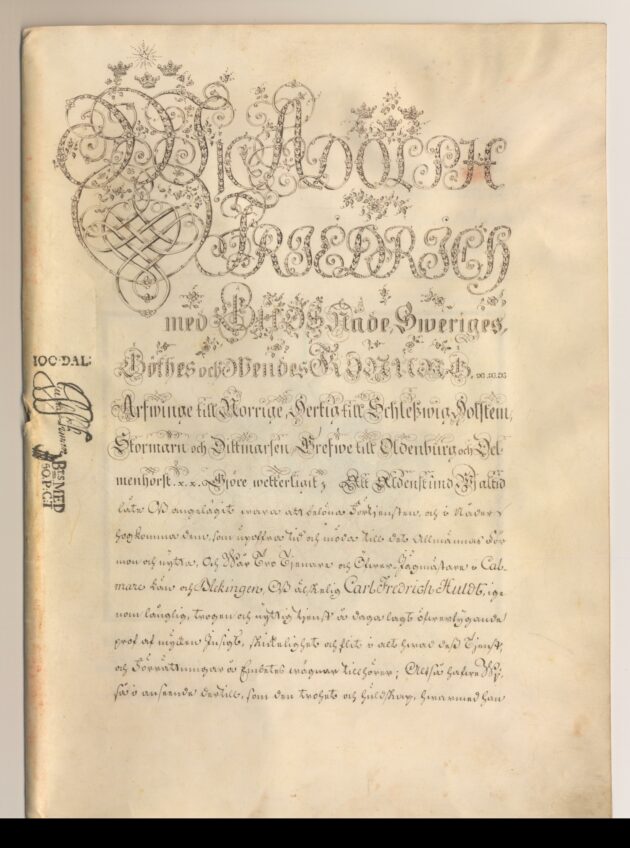 Wi ADOLPH
FRIEDRICH
med GUDS Nåde, Sweriges,
Göthes och Wendes KONUNG, &c. &c. &c.
Arfwinge till Norrige, Hertig till Schleßwig, Holstein,
Stormarn och Dittmarsen, Grefwe till Oldenburg och Del-
menhorst. x. x. Giöre wetterligit; Att Aldenstund Wi altid
låte Oß angelägit wara att belöna Förtjensten, och i Nåder
hogkomma dem, som upoffra tid och möda till det Allmännas För-
mon och nytta, Och Wår Tro Tjenare och Öfwer-Jägmästare i Cal-
mare Län och Blekingen, Oß älskelig Carl Fredrich Huldt, ige-
nom långlig, trogen och nyttig tjenst å daga lagt öfwertygande
prof af mycken Insigt, skickelighet och flit i alt hwad deß Tjenst,
och Förrättningar å Embetes wägnar tillhörer; Altså hafwe Wij,
så i anseende dertill, som den trohet och huldskap, hwarmed han
100·DAL:
MED
50. P: CT